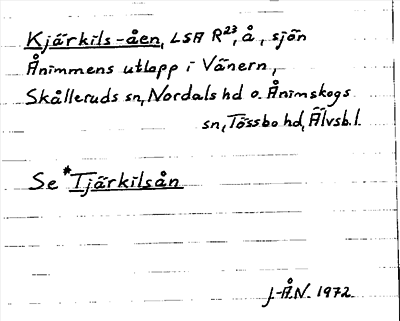 Kjärkils-åen, LSA R²³, å, sjön
Ånimmens utlopp i Vänern,
Skålleruds sn, Nordals hd o. Ånimskogs
sn, Tössbo hd, Älvsb. l.
Se *Tjärkilsån
J-Å.N. 1972.